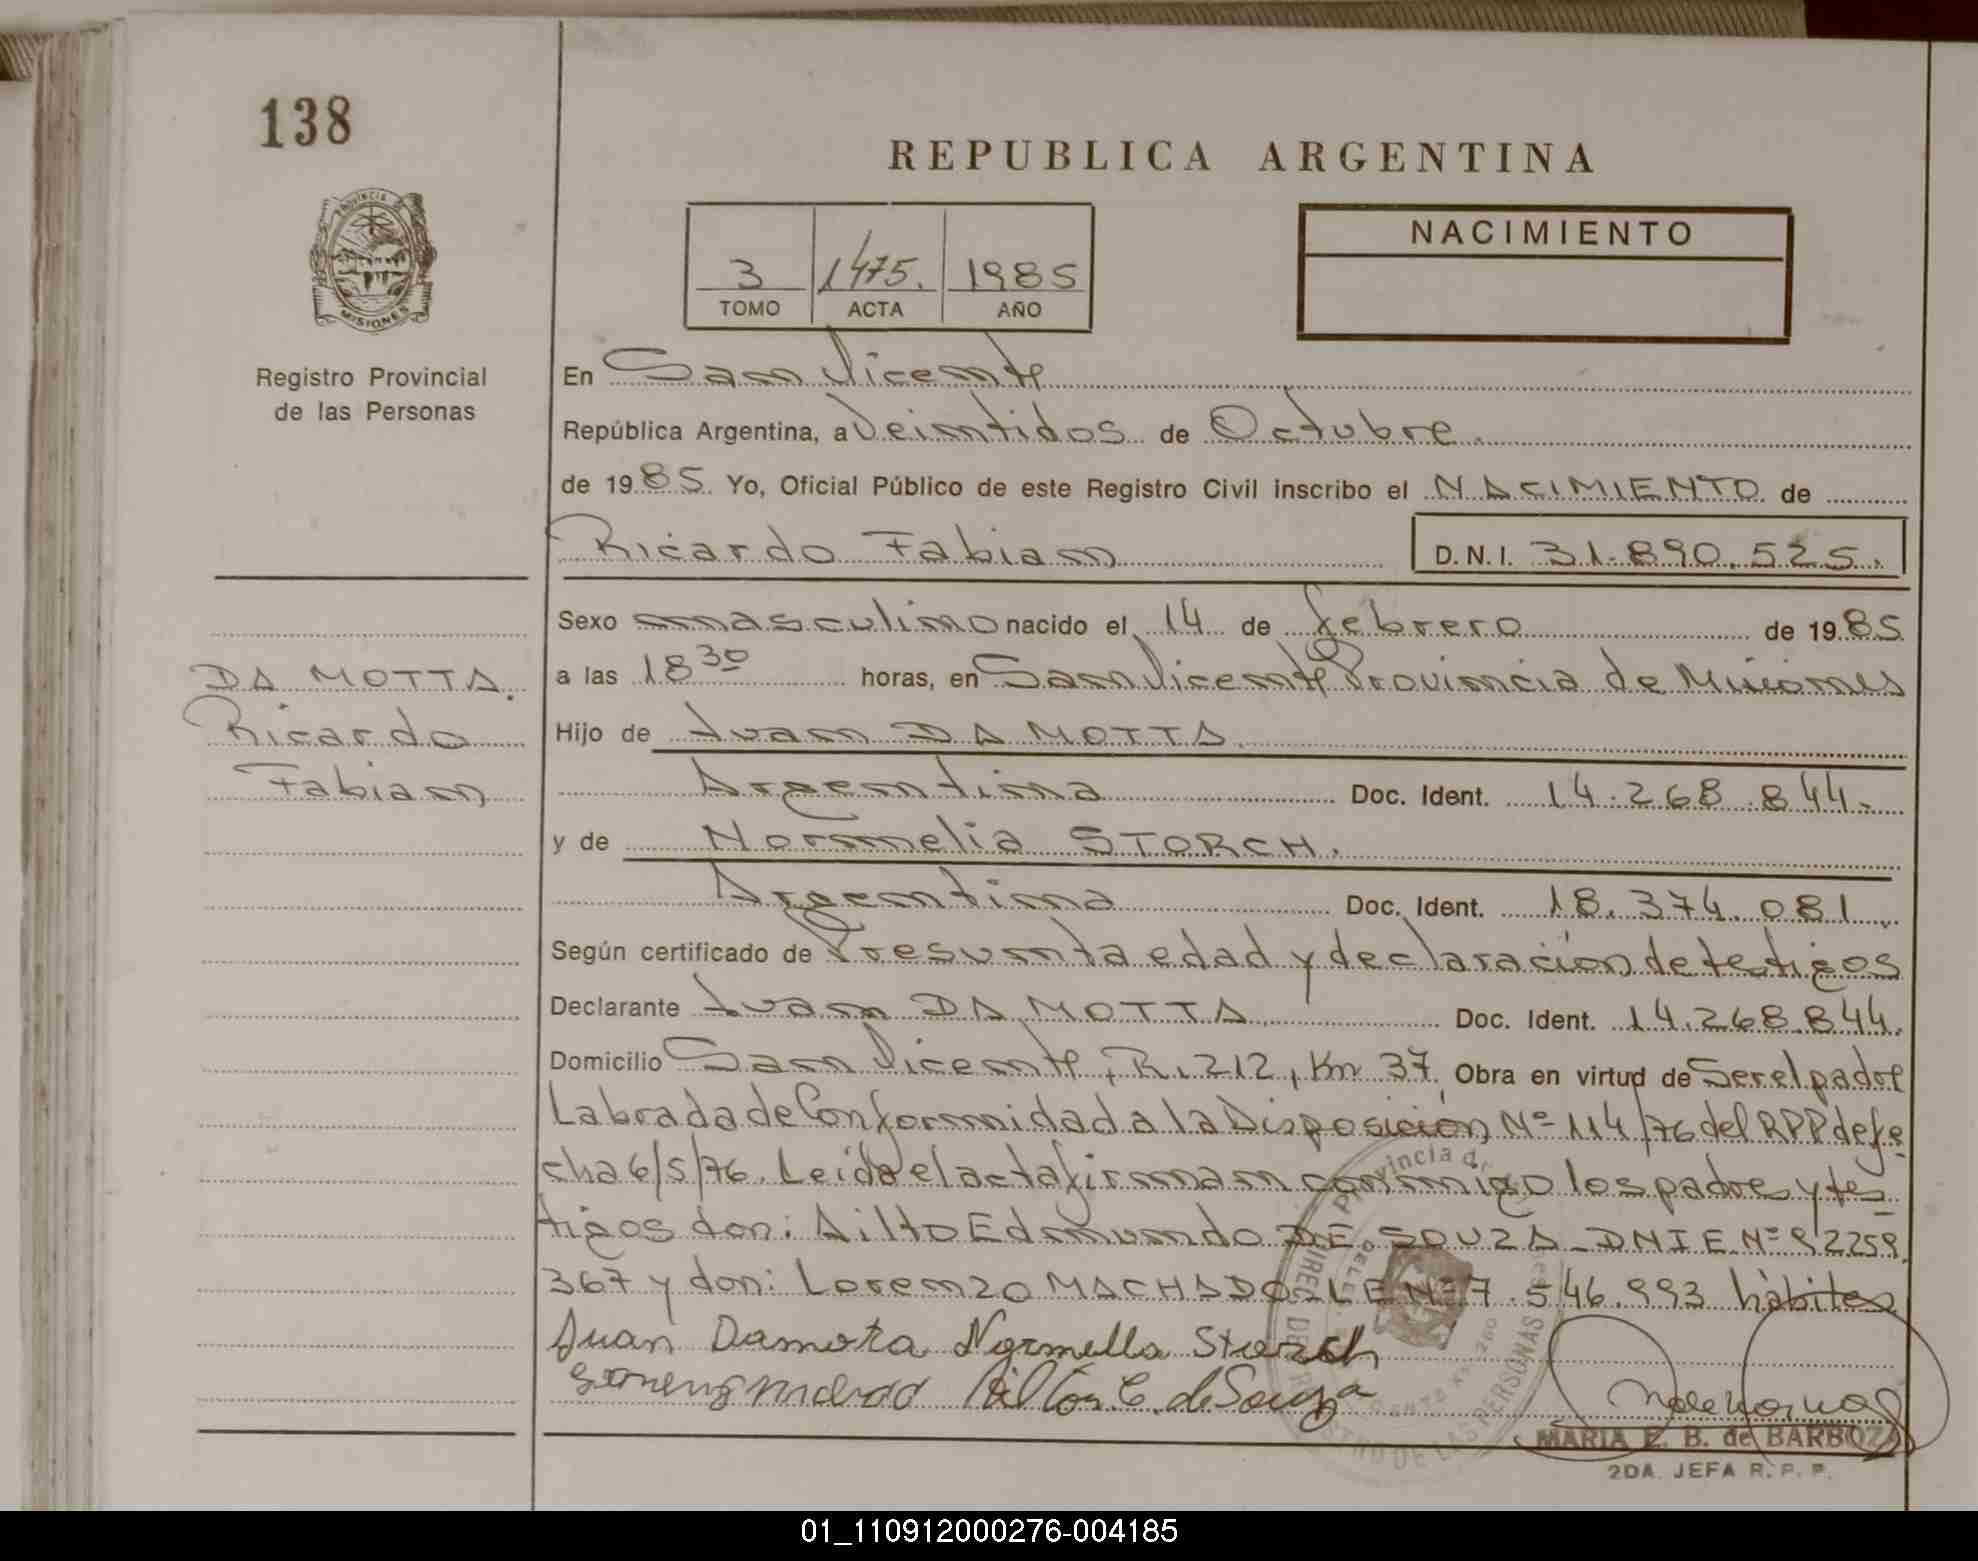 138
REPUBLICA ARGENTINA
PROVINCIA DE
MISIONES
NACIMIENTO
3 1475. 1985
TOMO ACTA AÑO
Registro Provincial
de las Personas
En San Vicente
República Argentina, a Veintidos de Octubre.
de 1985. Yo, Oficial Público de este Registro Civil inscribo el NACIMIENTO de
Ricardo Fabian D.N.I. 31.890.525.
Sexo masculino nacido el 14 de febrero de 1985
DA MOTTA.
Ricardo
Fabian
a las 18 30 horas, en San Vicente Provincia de Misiones
Hijo de Juan DA MOTTA.
Argentina Doc. Ident. 14.268.844.
y de Normelia STORCH.
Argentina Doc. Ident. 18.374.081.
Según certificado de Presunta edad y declaración de testigos
Declarante Juan DA MOTTA Doc. Ident. 14.268.844.
Domicilio San Vicente, R. 212, Km 37. Obra en virtud de Ser el padre
Labrada de Conformidad a la Disposición Nº 114/76 del RPP de fe
cha 6/5/76. Leída el acta firman conmigo los padres y tes
tigos don: Ailto Edmundo DE SOUZA - DNIE Nº 92259.
367 y don: Lorenzo MACHADO - LE Nº 7.546.993 hábiles
Juan Damota Normella Storch
Ailton E. de Souza
MARIA E. B. de BARBOZA
2DA. JEFA R. P. P.
01_110912000276-004185